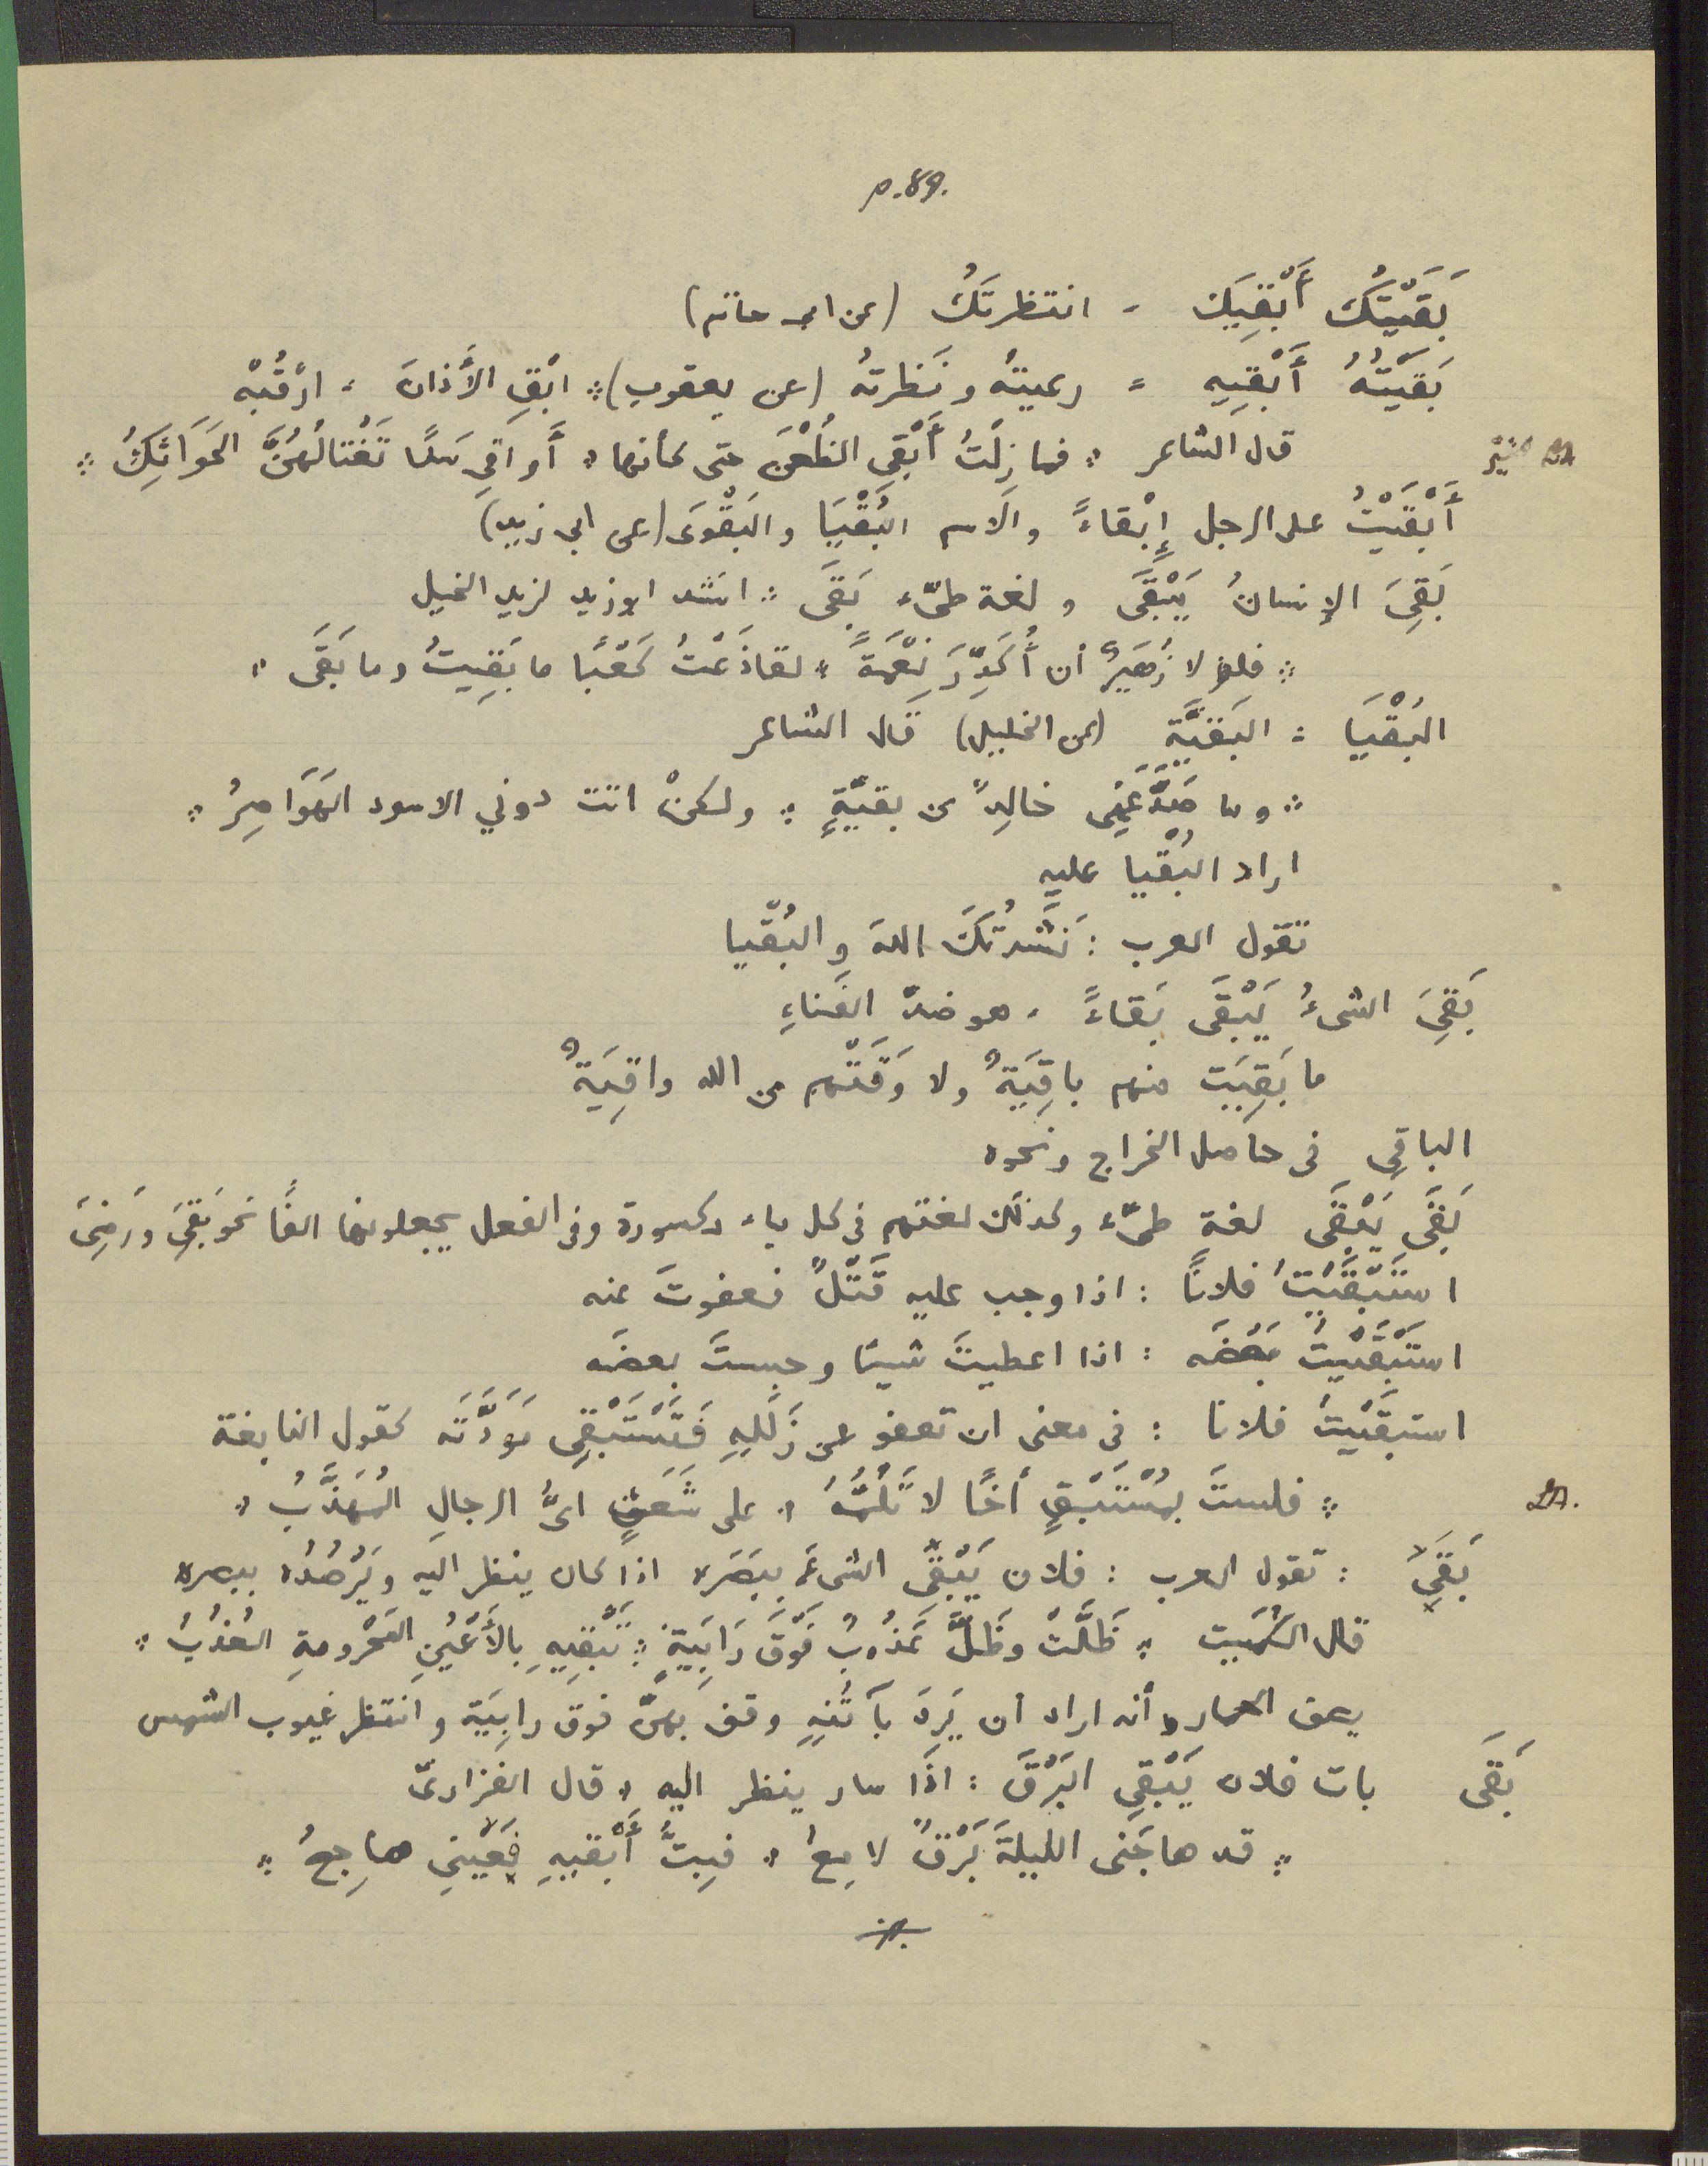 p.89.
بَقَيْتُكَ أَبْقِيكَ - انتظرتَكُ (عن ابى حاتم)
بَقَيْتُهُ أَبْقِيهِ = رعيتهُ ونَظَرتهُ (عن يعقوب) ⁘ ابْقِ الأَذانَ = ارْقُبْه
LA كُثيّر قال الشاعر ⁘ فما زِلْتُ أَبْقِي الظُعْنَ حتى كأنها ⁘ أَواقي سَدًا تَغْتالُهُنَّ الحَوَائِكُ ⁘
أَبْقَيْتُ على الرجل إِبْقاءً والاسم البُقْيَا والبَقْوَى (عن ابى زيد)
بَقِيَ الإنسانُ يَبْقَى ولغة طىّء بَقَى ⁘ انشد ابو زيد لزيد الخيل
⁘ فلولا زُهَيرٌ أن أُكَدِّرَ نِعْمَةً ⁘ لقاذَعْتُ كَعْبًا ما بَقِيتُ وما بَقَى ⁘
البُقْيَا = البَقيَّة (عن الخليل) قال الشاعر
⁘ وما صَدَّ عَنِّى خالِدٌ من بقيَّةٍ ⁘ ولكنْ اتت دوني الاسود الهَوَاصِرُ ⁘
اراد البُقْيا عليه
تقول العرب : نَشَدْتُكَ اللهَ والبُقْيا
بَقِيَ الشىءُ يَبْقَى بَقاءً - هو ضدّ الفَناءِ
ما بَقِيَت منهم باقِيَةٌ ولا وَقَتْهم من الله واقِيَةٌ
الباقِى فى حاصل الخراج ونحوه
بَقَى يَبْقَى لغة طىّء وكذلك لغتهم فى كل ياء مكسورة وفى الفعل يجعلونها الفًا نحو بَقِيَ ورَضِىَ
استَبْقَيْتُ فلانًا : اذا وجب عليه قَتْلٌ فعفوتَ عنه
استَبْقَيْتُ بَعْضَه : اذا اعطيتَ شيئا وحبستَ بعضَه
استبقَيْتُ فلانا : فى معنى ان تعفو عن زَلَلِهِ فَتَسْتَبْقِى مَوَدَّتَه كقول النابغة
LA. ⁘ فلستَ بمُسْتَبْقٍ أخًا لا تَلُمُّهُ ⁘ على شَعَثٍ اىُّ الرجالِ المُهَذَّبُ ⁘
بَقَى : تقول العرب : فلان يَبْقِى الشىءَ ببَصَرِه اذا كان ينظر اليه ويَرْصُدُه ببصره
قال الكُمَيت ⁘ ظَلَّتْ وظَلَّ عَذُوبًا فَوْقَ رَابِيَةٍ ⁘ تَبْقِيهِ بِالأَعْيُنِ المَحْرومةِ العُذُبُ ⁘
يصف الحمار وأنه اراد ان يَرِدَ بأُتُنِهِ وقف بهنّ فوق رابِيَة وانتظر غيوب الشمس
بَقَى بات فلان يَبْقِي البَرْقَ : اذَا سار ينظر اليه ⁘ قال الفزارىّ
⁘ قد هاجَنى الليلةَ بَرْقٌ لامِعُ ⁘ فبِتُّ أَبْقيهِ فَعَيْنِي هاجِعُ ⁘